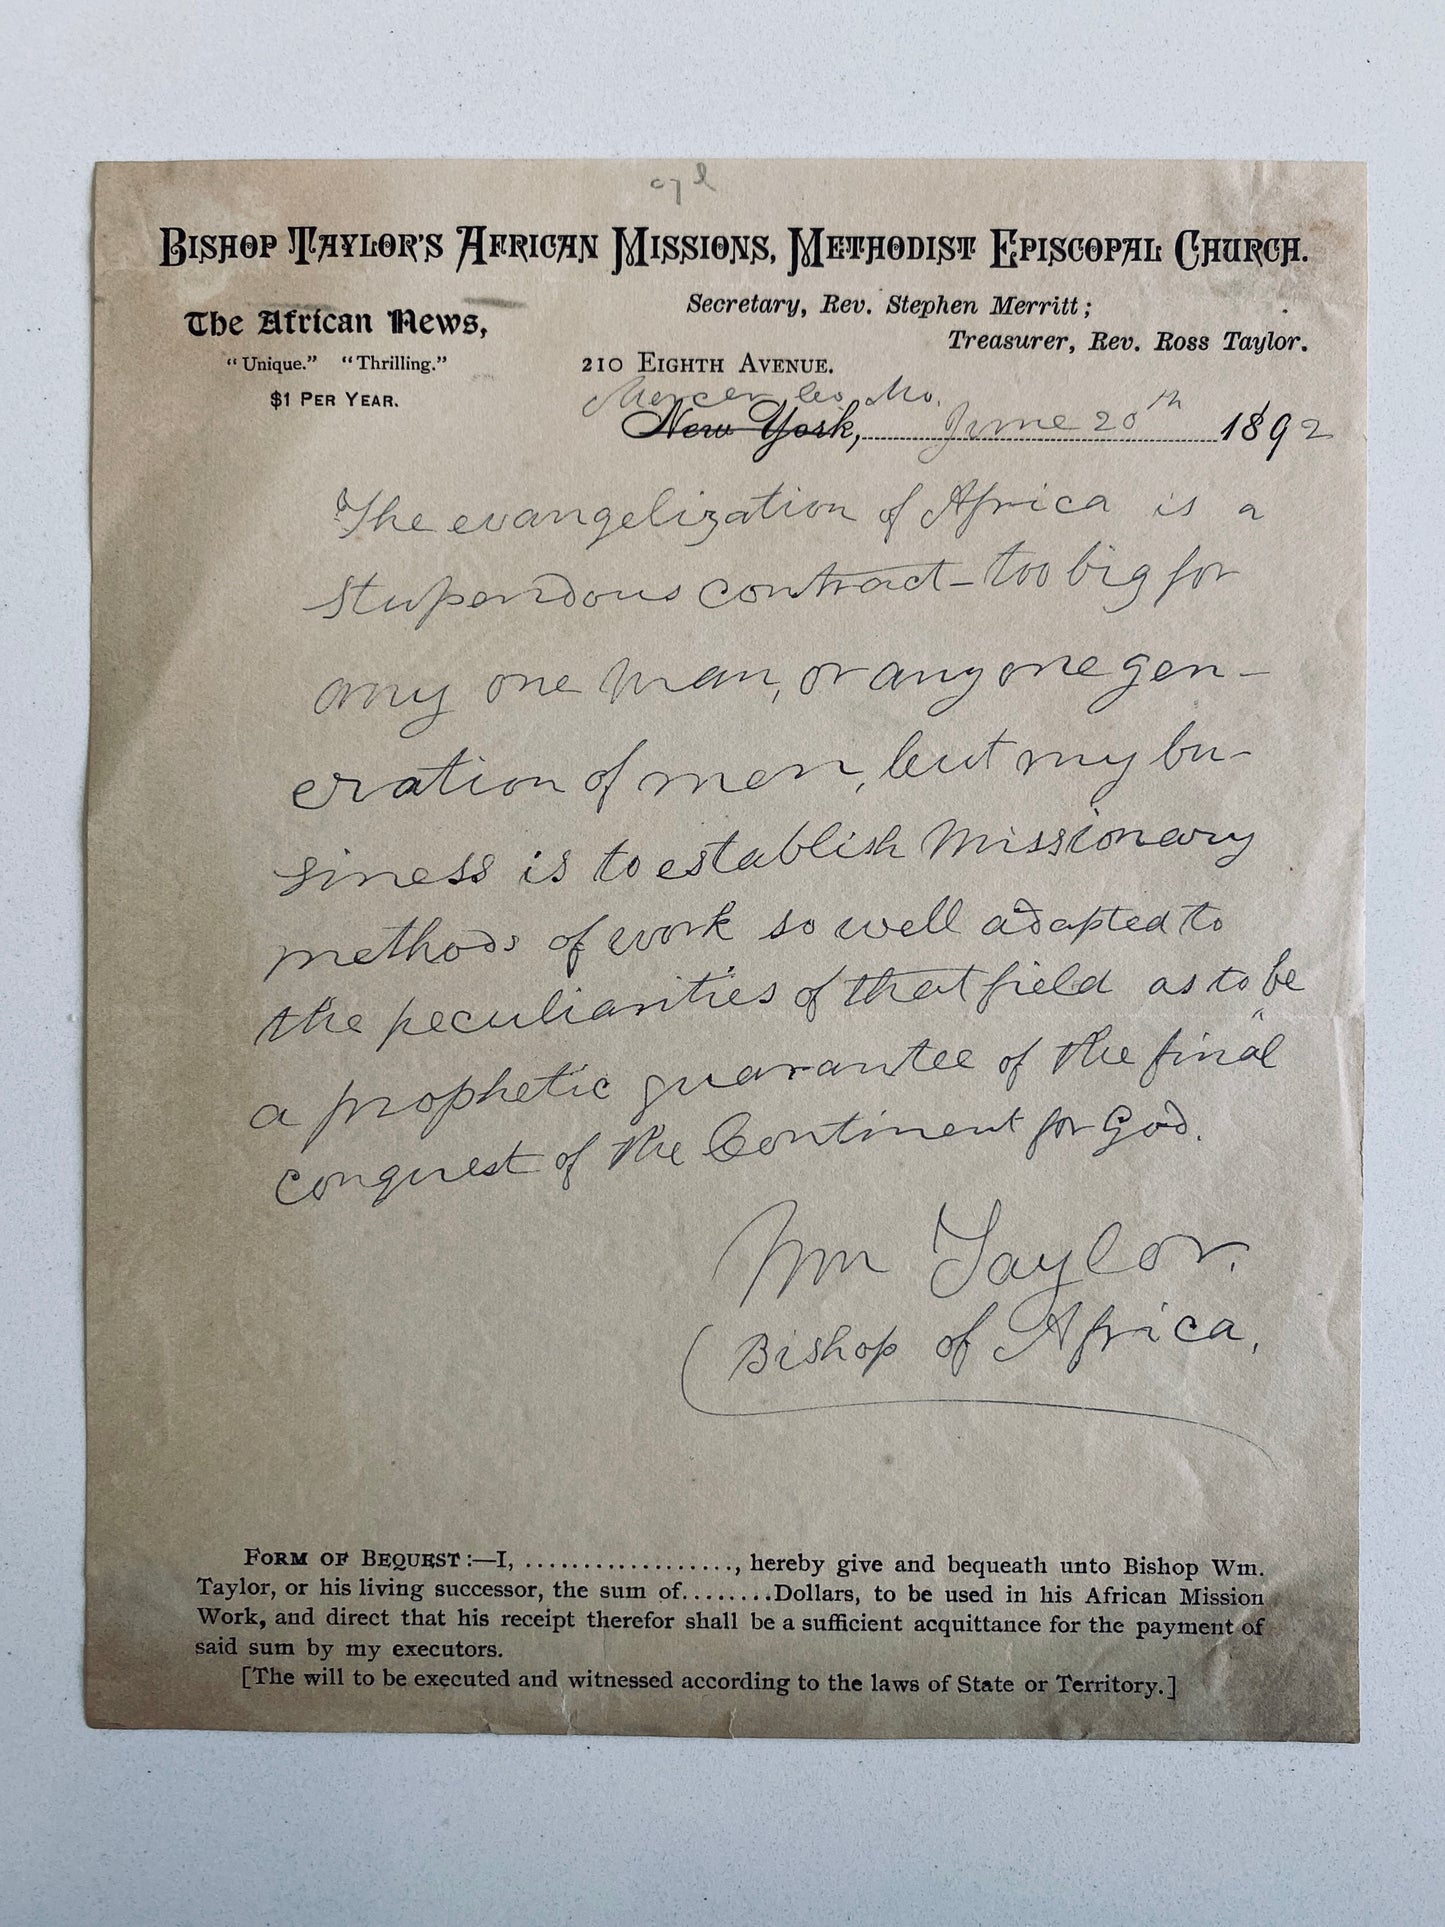 BISHOP TAYLOR'S AFRICAN MISSIONS, METHODIST EPISCOPAL CHURCH.
The African News,
"Unique." "Thrilling."
$1 PER YEAR.
Secretary, Rev. Stephen Merritt;
Treasurer, Rev. Ross Taylor.
210 EIGHTH AVENUE.
Mercer Co, Mo.
New York, June 20th 1892
The evangelization of Africa is a
stupendous contract — too big for
any one man, or any one gen-
eration of men, but my bu-
siness is to establish missionary
methods of work so well adapted to
the peculiarities of that field as to be
a prophetic guarantee of the final
conquest of the Continent for God.
Wm Taylor.
Bishop of Africa,
FORM OF BEQUEST:—I, ..................., hereby give and bequeath unto Bishop Wm.
Taylor, or his living successor, the sum of........Dollars, to be used in his African Mission
Work, and direct that his receipt therefor shall be a sufficient acquittance for the payment of
said sum by my executors.
[The will to be executed and witnessed according to the laws of State or Territory.]